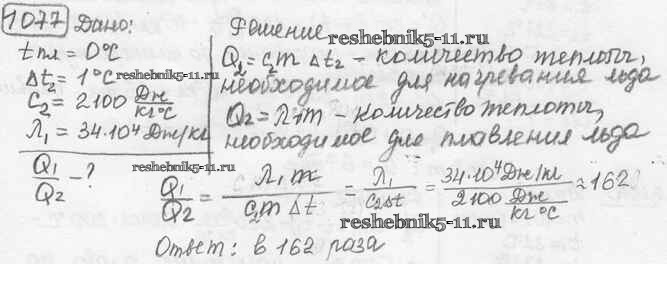 1077 Дано:
t пл = 0°C
Δt₂ = 1°C
c₂ = 2100 Дж/кг°C
λ₁ = 34·10⁴ Дж/кг
Q₁/Q₂ - ?
Решение
reshebnik5-11.ru
Q₂ = c₂m Δt₂ - количество теплоты,
reshebnik5-11.ru
необходимое для нагревания льда
Q₂ = λ₁m - количество теплоты,
необходимое для плавления льда
reshebnik5-11.ru
Q₁/Q₂ = λ₁m/c₂m Δt = λ₁/c₂Δt = 34·10⁴ Дж/кг / 2100 Дж/кг°C ≈ 162
reshebnik5-11.ru
Ответ: в 162 раза